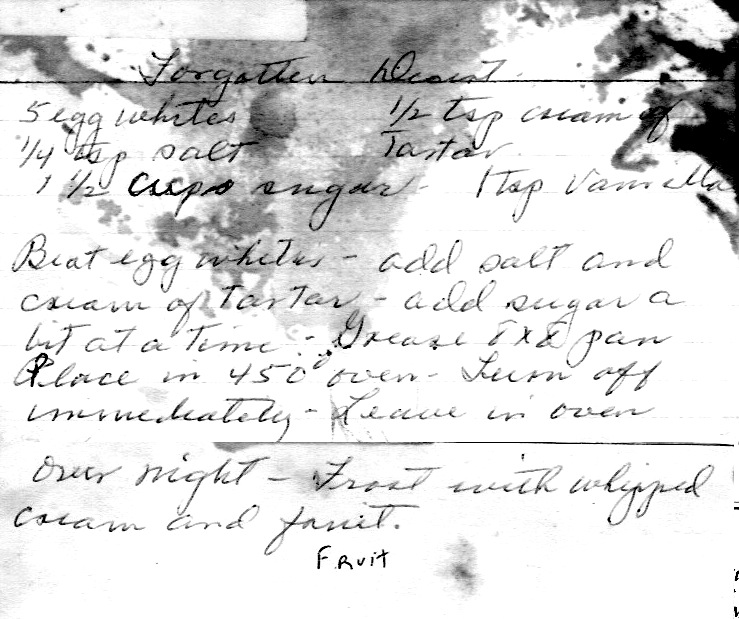 Forgotten Desert
5 egg whites 1/2 tsp cream of
1/4 tsp salt Tartar
1 1/2 cups sugar - 1 tsp Vanilla
Beat egg whites - add salt and
cream of Tartar - add sugar a
bit at a time - Grease 8x8 pan
Place in 450° oven - Turn off
immediately - Leave in oven
over night - Frost with whipped
cream and fruit.
FRUIT